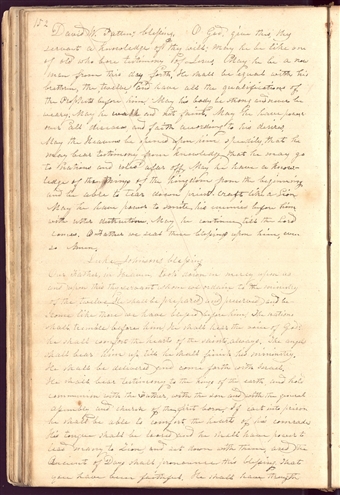 152
David W. Patten's blessing, O God, give this, thy
servant a knowledge of thy will; may he be like one
of old who bore testimony of Jesus. May he be a new
man from this day forth. He shall be equal with his
brethren, the twelve, and have all the qualifications of
the Prophets before him. May his body be strong and never be
weary, May he walk and not faint. May he have power
over all diseases and faith according to his desires,
May the Heavens be opened upon him speedily, that he
may bear testimony from knowledge, that he may go
to Nations and isles afar off. May he have a know-
ledge of the things of the kingdom, from the beginning
and be able to tear down priest craft like a Lion
May he have power to smite his enemies before him
with utter destruction, May he continue till the Lord
comes. O Father we seal these blessings upon him, even
so Amen.
Luke Johnson's blessing
Our Father in Heaven, look down in mercy upon us
and upon this thy servant whom we ordain to the ministry
of the twelve. He shall be prepared and preserved, and be
like those we have blessed before him. The nations
shall tremble before him. He shall hear the voice of God;
he shall comfort the hearts of the saints always. The angels
shall bear him up till he shall finish his ministry.
He shall be delivered, and come forth with Israel.
He shall bear testimony to the kings of the earth and hold
communion with the Father, with the son and with the general
assembly and church of the first born. If cast into prison
he shall be able to comfort the hearts of his comrades
His tongue shall be loosed and he shall have power to
lead many to Zion and sit down with them; and the
Ancient of Days shall pronounce this blessing, that
you have been faithful; He shall have strength